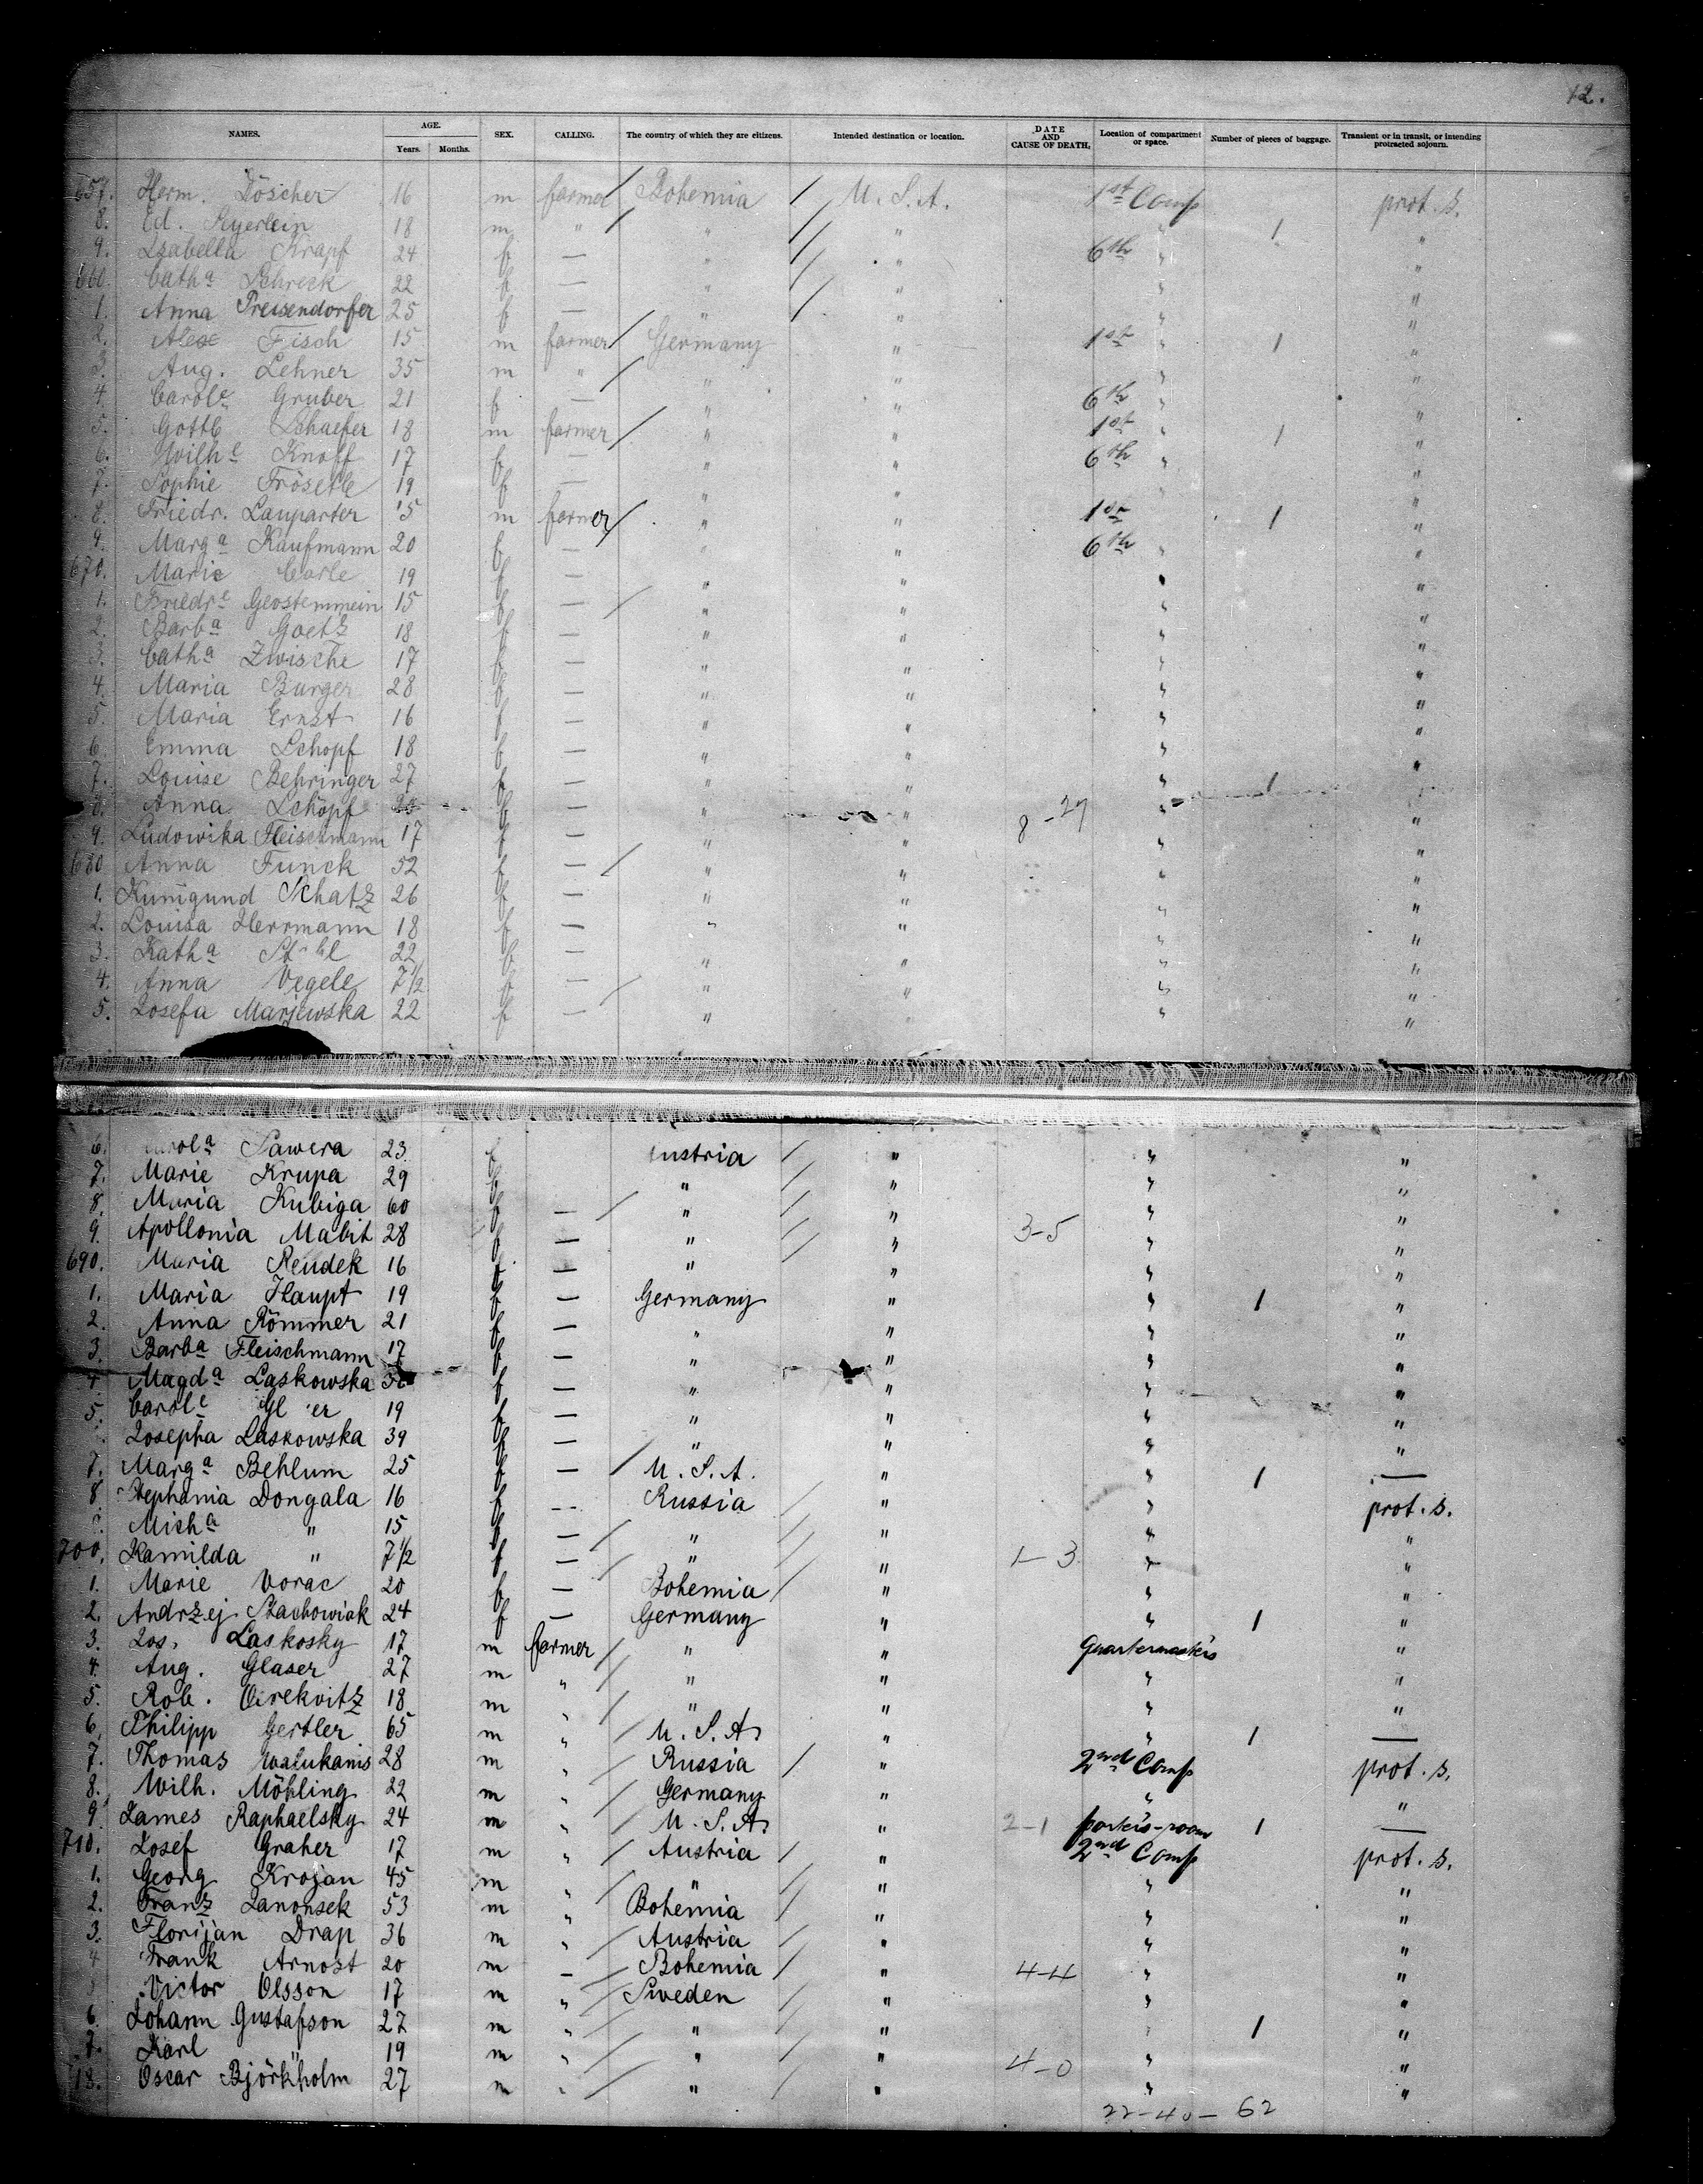 12.
NAMES. AGE. Years. Months. SEX. CALLING. The country of which they are citizens. Intended destination or location. DATE AND CAUSE OF DEATH. Location of compartment or space. Number of pieces of baggage. Transient or in transit, or intending protracted sojourn.
657. Herm. Döscher 16 m farmer Bohemia U.S.A. 1st Comp prot. s.
8. Ed. 18 m " " " " 1 "
9. Isabella Krapf 24 f — " " 6th " "
660. Catha Schreck 22 f — " " " "
1. Anna Preisendorfer 25 f — " " " "
2. Alex Fisch 15 m farmer Germany " 1st " 1 "
3. Aug. Lehner 35 m " " " " "
4. Carole Gruber 21 f — " " 6th " "
5. Gottb Schaefer 18 m farmer " " 1st " 1 "
6. Wilhe Knoff 17 f — " " 6th " "
7. Sophie 19 f — " " "
8. Friedr. Lauparter 15 m farmer " " 1st 1 "
9. Marga Kaufmann 20 f — " " 6th " "
670. Marie Carle 19 f — " " " "
1. Friedre 15 f — " " " "
2. Barba Goetz 18 f — " " " "
3. Catha Zwische 17 f — " " " "
4. Maria Burger 28 f — " " " "
5. Maria Ernst 16 f — " " " "
6. Emma Schopf 18 f — " " " "
7. Louise Behringer 27 f — " " " 1 "
8. Anna Schöpf f — " " 8-27 " "
9. Ludowika Fleischmann 17 f — " " " "
680 Anna Funck 52 f — " " " "
1. Kunigund Schatz 26 f — " " " "
2. Louisa Herrmann 18 f — " " " "
3. Katha 22 f — " " " "
4. Anna Vegele 7½ f — " " " "
5. Josefa Marjewska 22 f — " " "
6. Sawera 23 f ustria " " "
7. Marie Krupa 29 f " " " "
8. Maria Kubiga 60 f — " " " "
9. Apollonia Mabit 28 f — " " 3-5 " "
690. Maria Rendek 16 f — " " " "
1. Maria Haupt 19 f — Germany " " 1 "
2. Anna Römmer 21 f — " " " "
3. Barba Fleischmann 17 f — " " " "
4. Magda Laskowska f — " " " "
5. Carole 19 f — " " " "
Josepha Laskowska 39 f — " " " "
7. Marga Behlum 25 f — U.S.A. " " 1 —
8 Stephania Dongala 16 f -- Russia " " prot. s.
Micha " 15 f — " " " "
700. Kamilda " 7½ f — " " 1-3 " "
1. Marie Vorac 20 f — Bohemia " " "
2. Andrzej Stachowiak 24 f — Germany " " 1 "
3. Jos. Laskosky 17 m farmer " " Quartermasters "
4. Aug. Glaser 27 m " " " " "
5. Rob. 18 m " " " " "
6. Philipp Gertler 65 m " U.S.A. " " 1 —
7. Thomas Walukanis 28 m " Russia " 2nd Comp prot. s.
8. Wilh. Möhling 22 m " Germany " " "
9 James Raphaelsky 24 m " U.S.A. " 2-1 porters-room 1 —
710. Josef Graher 17 m " Austria " 2nd Comp prot. s.
1. Georg Krojan 45 m " " " " "
2. Franz Janousek 53 m " Bohemia " " "
3. Florijan Drap 36 m " Austria " " "
4 Frank Arnost 20 m — Bohemia " 4-4 " "
Victor Olsson 17 m " Sweden " " "
6. Johann Gustafson 27 m " " " " 1 "
7. Karl " 19 m " " " 4-0 " "
18. Oscar Björkholm 27 m " " " " "
22-40-62